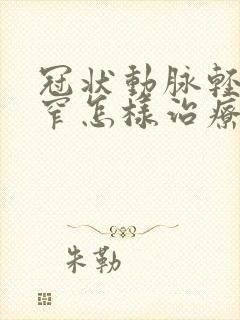 冠状動脉輕
窄怎樣治療
朱勒